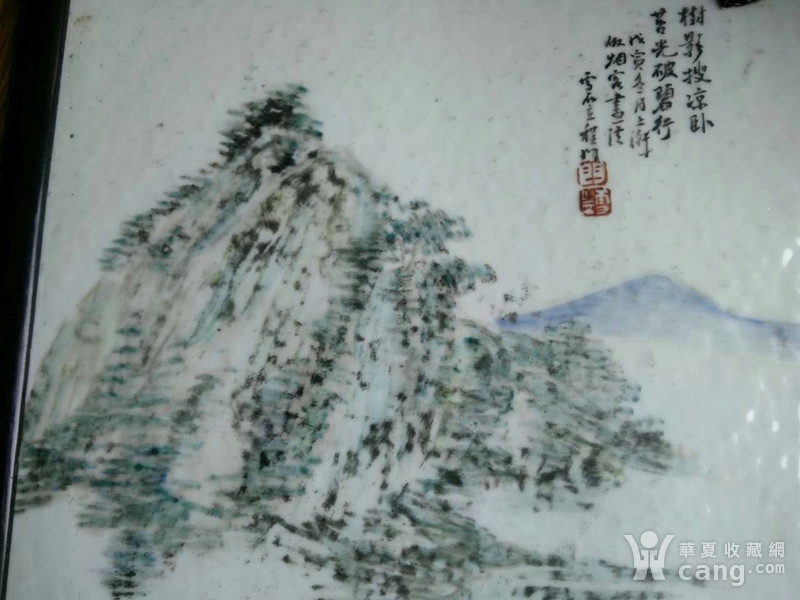 樹影搜凉卧
苔光破碧行
戊寅冬月上澣
仿烟客畫法
雪石主程門
華夏收藏網
cang.com